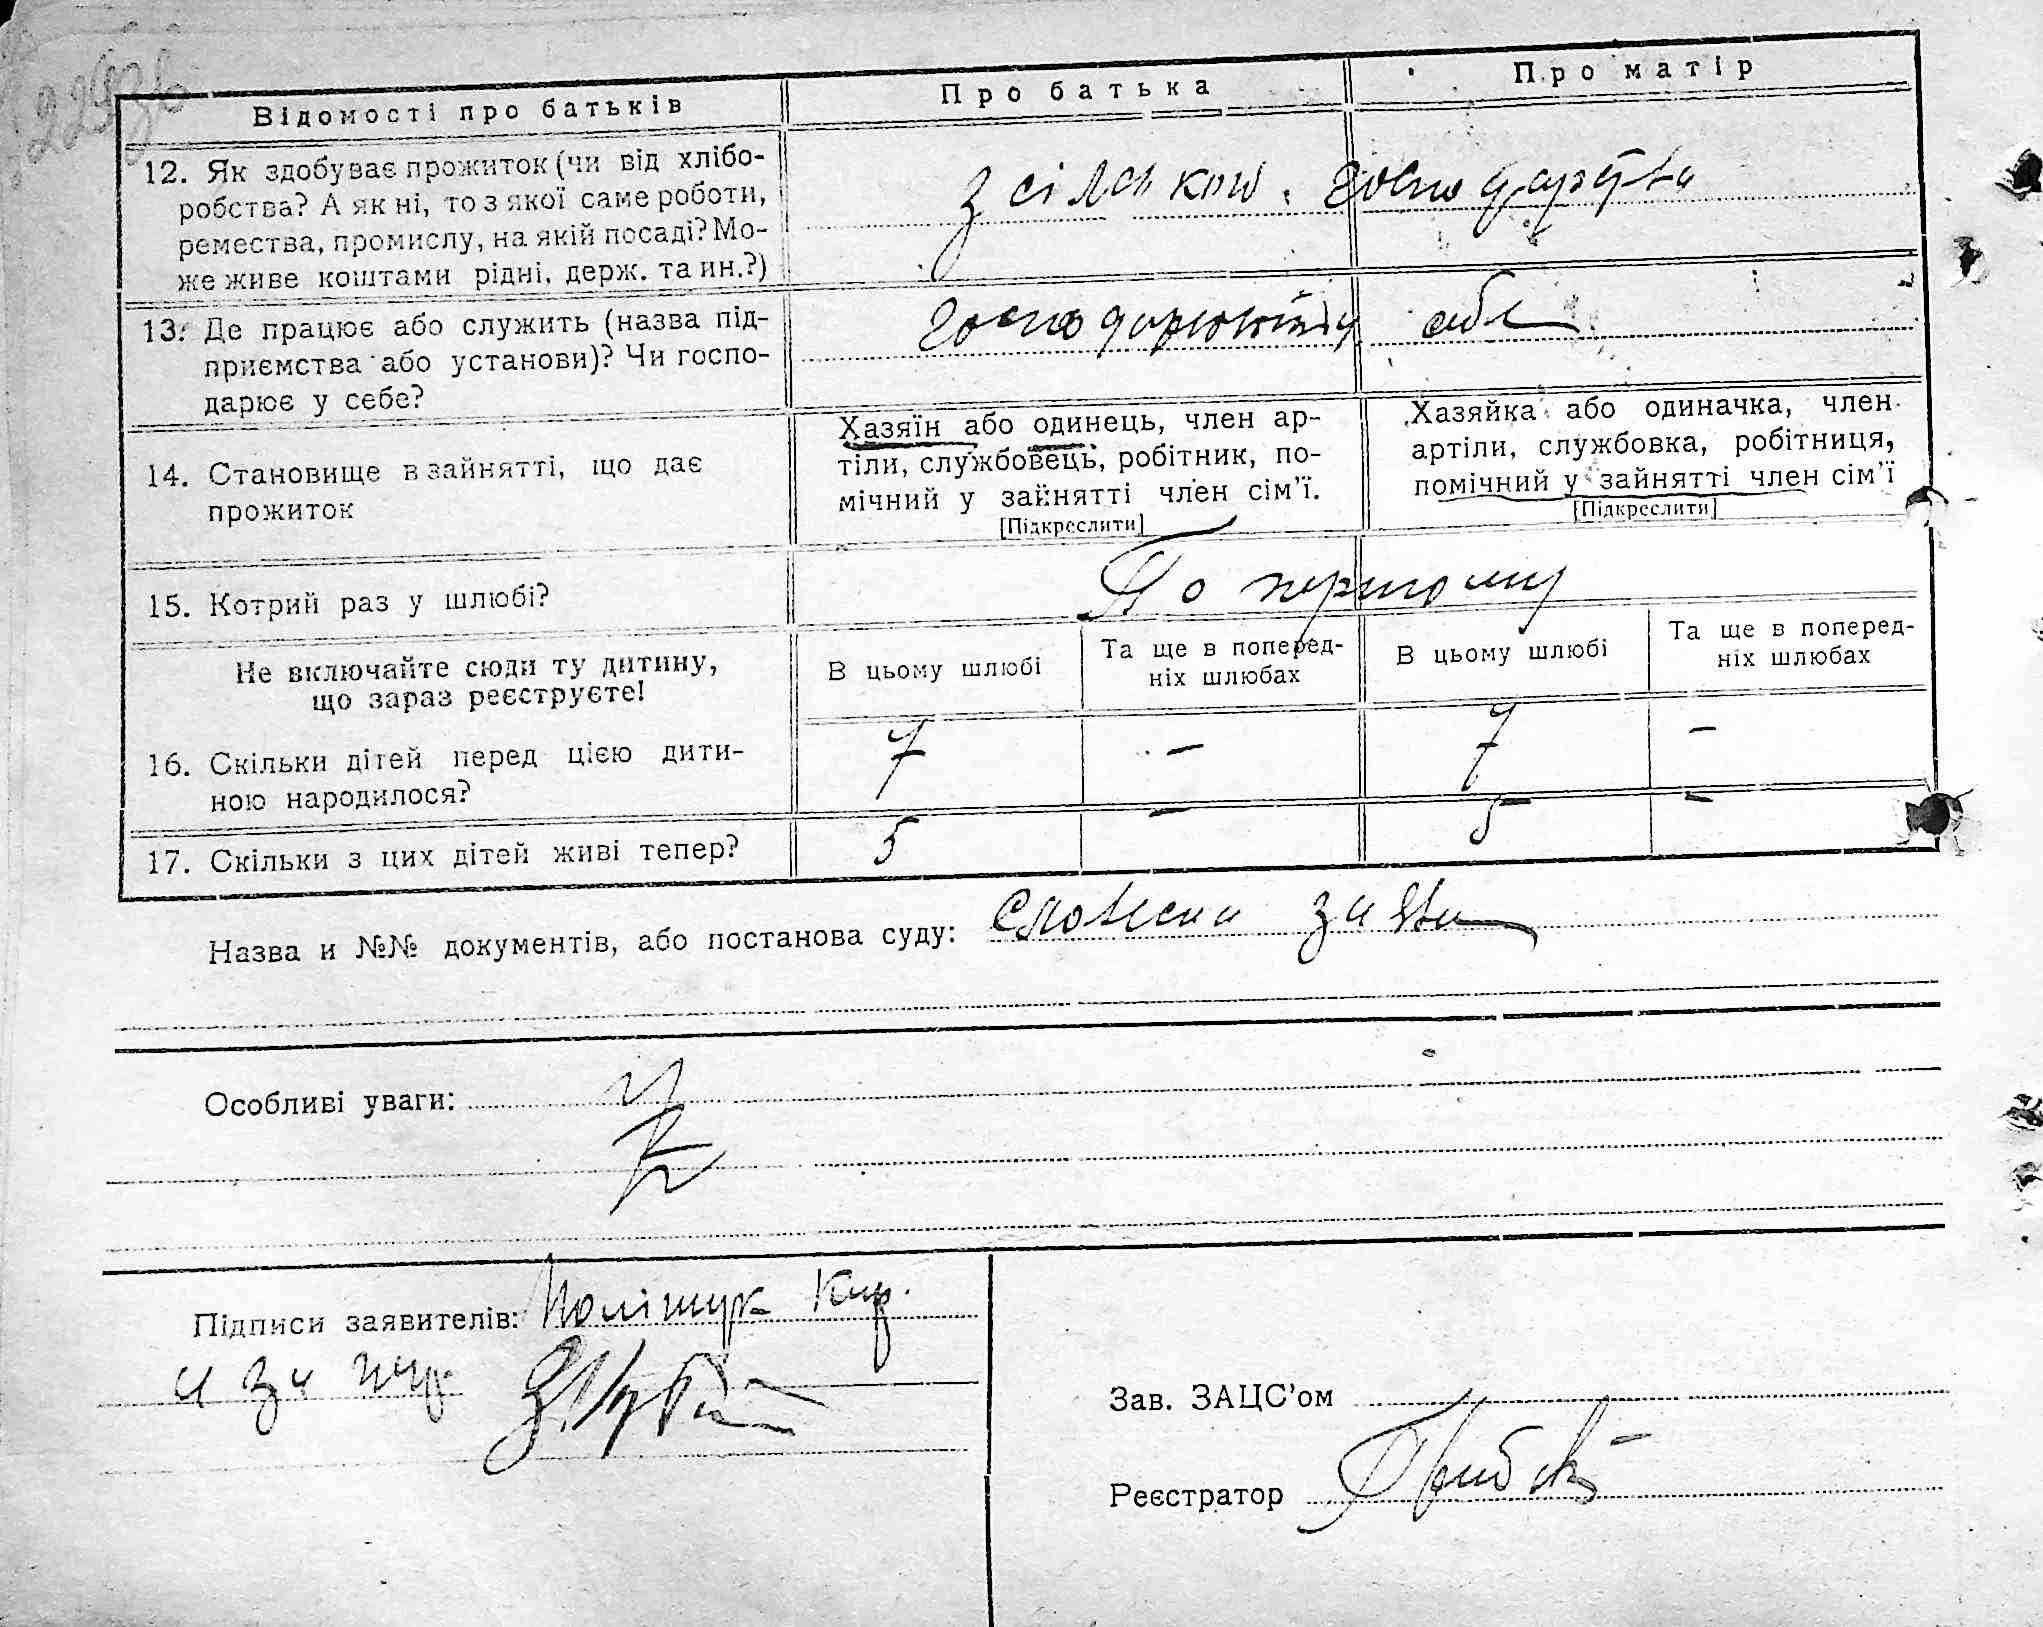 Відомості про батьків
Про батька
Про матір
12. Як здобуває прожиток (чи від хлібо-
робства? А як ні, то з якої саме роботи,
ремества, промислу, на якій посаді? Мо-
же живе коштами рідні, держ. та ин.?)
з сільськ. господарства
13. Де працює або служить (назва під-
приємства або установи)? Чи госпо-
дарює у себе?
господарюють у себе
14. Становище в зайнятті, що дає
прожиток
Хазяїн або одинець, член ар-
тіли, службовець, робітник, по-
мічний у зайнятті член сім'ї.
[Підкреслити]
Хазяйка або одиначка, член
артіли, службовка, робітниця,
помічний у зайнятті член сім'ї
[Підкреслити]
15. Котрий раз у шлюбі?
По першому
Не включайте сюди ту дитину,
що зараз реєструєте!
В цьому шлюбі
Та ще в поперед-
ніх шлюбах
В цьому шлюбі
Та ще в поперед-
ніх шлюбах
16. Скільки дітей перед цією дити-
ною народилося?
7 - 7 -
17. Скільки з цих дітей живі тепер?
5 - 5 -
Назва и №№ документів, або постанова суду: Словесна заява
Особливі уваги:
Підписи заявителів: Поліщук Кир.
а за
Зав. ЗАЦС'ом
Реєстратор